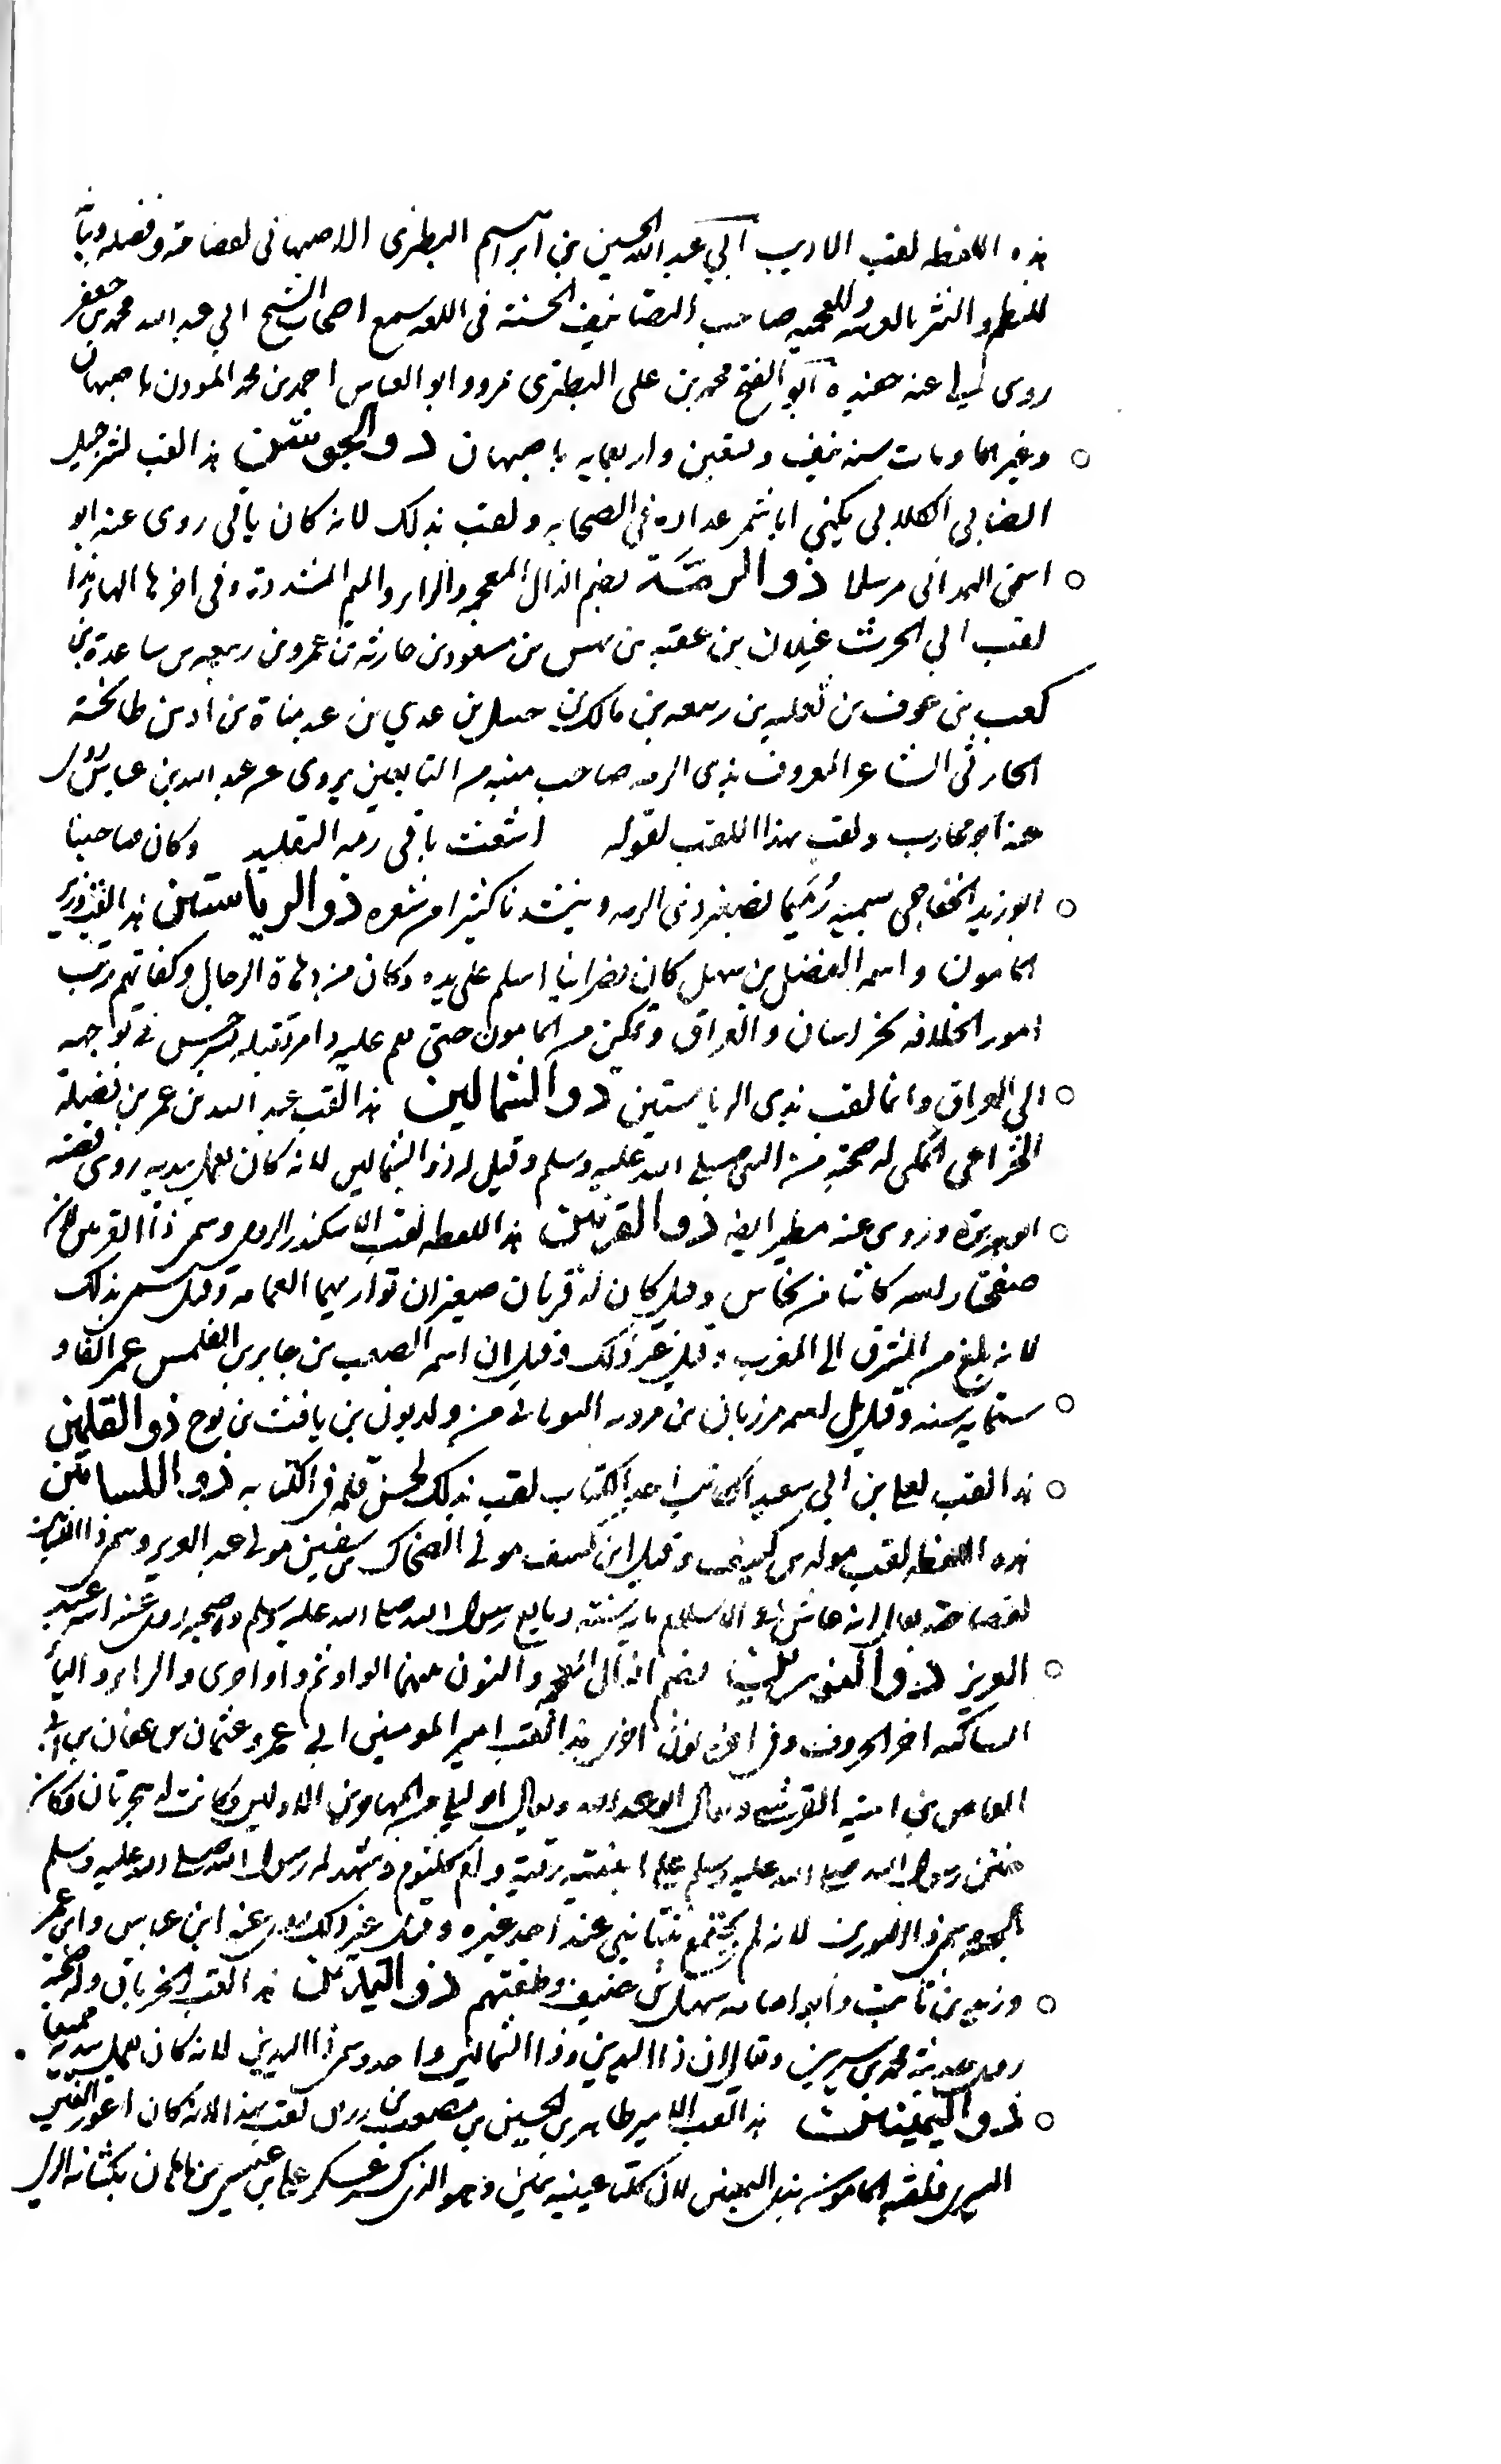 هذه اللفظه لقب الاديب ابي عبد الله الحسين بن ابراهيم النطنزى الاصبهانى لفصاحته وفضله
للنظم والنثر بالعربيه والعجميه صاحب التصانيف الحسنه فى اللغه سمع اصحاب الشيخ ابي عبد الله محمد بن جعفر
روى لى عنه حفيده ابو الفتح محمد بن على النطنزى بمرو وابو العباس احمد بن محمد المودن باصبهان
وغيرهما ومات سنه نيف وتسعين واربعمايه باصبهان ذو الجوشن هذا لقب شرحبيل
الضبابي الكلابي يكنى ابا شمر عداده في الصحابه ولقب بذلك لانه كان ناتى روى عنه ابو
اسحق الهمداني مرسلا ذو الرمّة بضم الذال المعجمه والراء والميم المشددة وفى اخرها الهاء هذا
لقب ابي الحرث غيلان بن عقبه بن بهس بن مسعود بن حارثه بن عمرو بن ربيعه بن ساعدة بن
كعب بن عوف بن ثعلبه بن ربيعه بن مالك بن حسل بن عدي بن عبد مناة بن اد بن طابخة
الحارثى الشاعر المعروف بذى الرمه صاحب ميه من التابعين يروى عن عبد الله بن عباس روى
عنه ابو محارب ولقب بهذا اللقب لقوله اشعث باقى رمه التقليد وكان صاحبنا
ابو زيد الخفاجى يسميه رُمَيما تصغير ذى الرمه وينشدنا كثيرا من شعره ذو الرياستين هذا لقب وزير
المامون واسمه الفضل بن سهل كان نصرانيا اسلم على يده وكان من دهاة الرجال وكفاتهم رتب
امور الخلافه بخراسان والعراق وتمكن من المامون حتى وامر بقتله بسرخس فى توجهه
الى العراق وانما لقب بذى الرياستين ذو الشمالين هذا لقب عبد الله بن عمرو بن نضلة
الخزاعى المكى له صحبة من النبى صلى الله عليه وسلم وقيل له ذو الشمالين لانه كان يعمل بيديه روى قصته
ابو هريرة وروى عنه مطير ايضا ذو القرنين هذه اللفظه لقب الاسكندر الرومى وسمى ذا القرنين لان
صفحتا راسه كانتا من نحاس وقيل كان له قرنان صغيران تواريهما العمامه وقيل سمى بذلك
لانه بلغ من المشرق الى المغرب وقيل غير ذلك وقيل ان اسمه الصعب بن جابر بن القلمس عمر الفا و
ستمايه سنه وقيل بل اسمه مرزبان بن مردبه اليونانى من ولد يونن بن يافث بن نوح ذو القلمين
هذا لقب لعلى بن ابي سعيد الكاتب احد الكتاب لقب بذلك لحسن قلمه فى الكتابه ذو اللسانين
هذه اللفظه لقب موله بن كثيف وقيل ابن كسيف مولى الضحاك بن سفين مولى عبد العزيز وسمى ذا اللسانين
لفصاحته يقال انه عاش فى الاسلام مايه سنه وبايع رسول الله صلى الله عليه وسلم وصحبه روى عنه ابنه عبد
العزيز ذو النورين بضم الذال المعجمه والنون بينهما الواو ثم واو اخرى والراء والياء
الساكنه اخر الحروف وفى اخره نون اخرى هذا لقب امير المومنين ابي عمرو عثمان بن عفان بن ابي
العاص بن امية القرشى ويقال ابو عبد الله ويقال ابو ليلى من المهاجرين الاولين وكانت له هجرتان وكان
ختن رسول الله صلى الله عليه وسلم على ابنتيه رقية وام كلثوم وشهد له رسول الله صلى الله عليه وسلم
بالجنه سمى ذا النورين لانه لم يجتمع بنتا نبى عند احد غيره وقيل غير ذلك روى عنه ابن عباس وابن عمر
وزيد بن ثابت وابو امامه سهل بن حنيف وطبقتهم ذو اليدين هذا لقب الخرباق وله صحبة
روى حديثه محمد بن سيرين ويقال ان ذا اليدين وذا الشمالين واحد وسمى ذا اليدين لانه كان يعمل بيديه جميعا
ذو اليمينين هذا لقب الامير طاهر بن الحسين بن مصعب بن رزيق لقب بهذا لانه كان اعور العين
اليسرى فلقبه المامون بذى اليمينين لان كلتا عينيه يمين وهو الذى كسر عسكر على بن عيسى بن ماهان